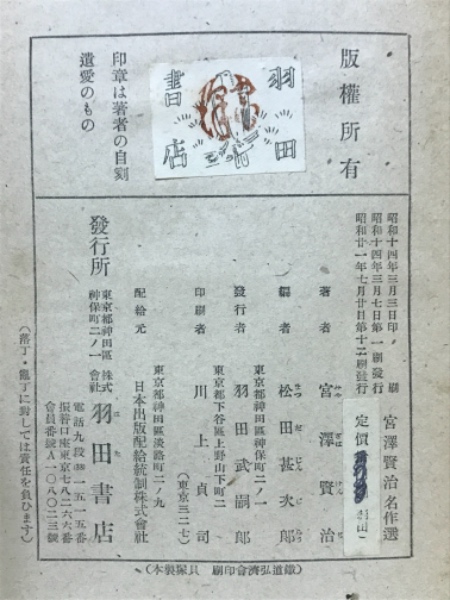 版權所有
羽田
書店
印章は著者の自刻
遺愛のもの
宮澤賢治名作選
定價
昭和十四年三月三日印刷
昭和十四年三月七日第一刷發行
昭和廿一年七月廿日第十二刷發行
著者 宮澤賢治
編者 松田甚次郎
東京都神田區神保町二ノ一
發行者 羽田武嗣郎
東京都下谷區上野山下町二
印刷者 川上貞司
(東京三二七)
東京都神田區淡路町二ノ九
配給元 日本出版配給統制株式會社
發行所
東京都神田區
神保町二ノ一
株式
會社
羽田書店
電話九段(33)一五一五番
振替口座東京七八二六六番
會員番號A一〇八〇二三號
(落丁・亂丁に對しては責任を負ひます)
(鐵道弘濟會印刷 貝塚製本)